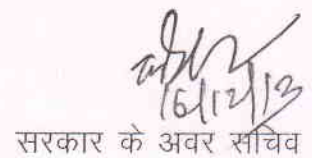 16/12/13
सरकार के अवर सचिव